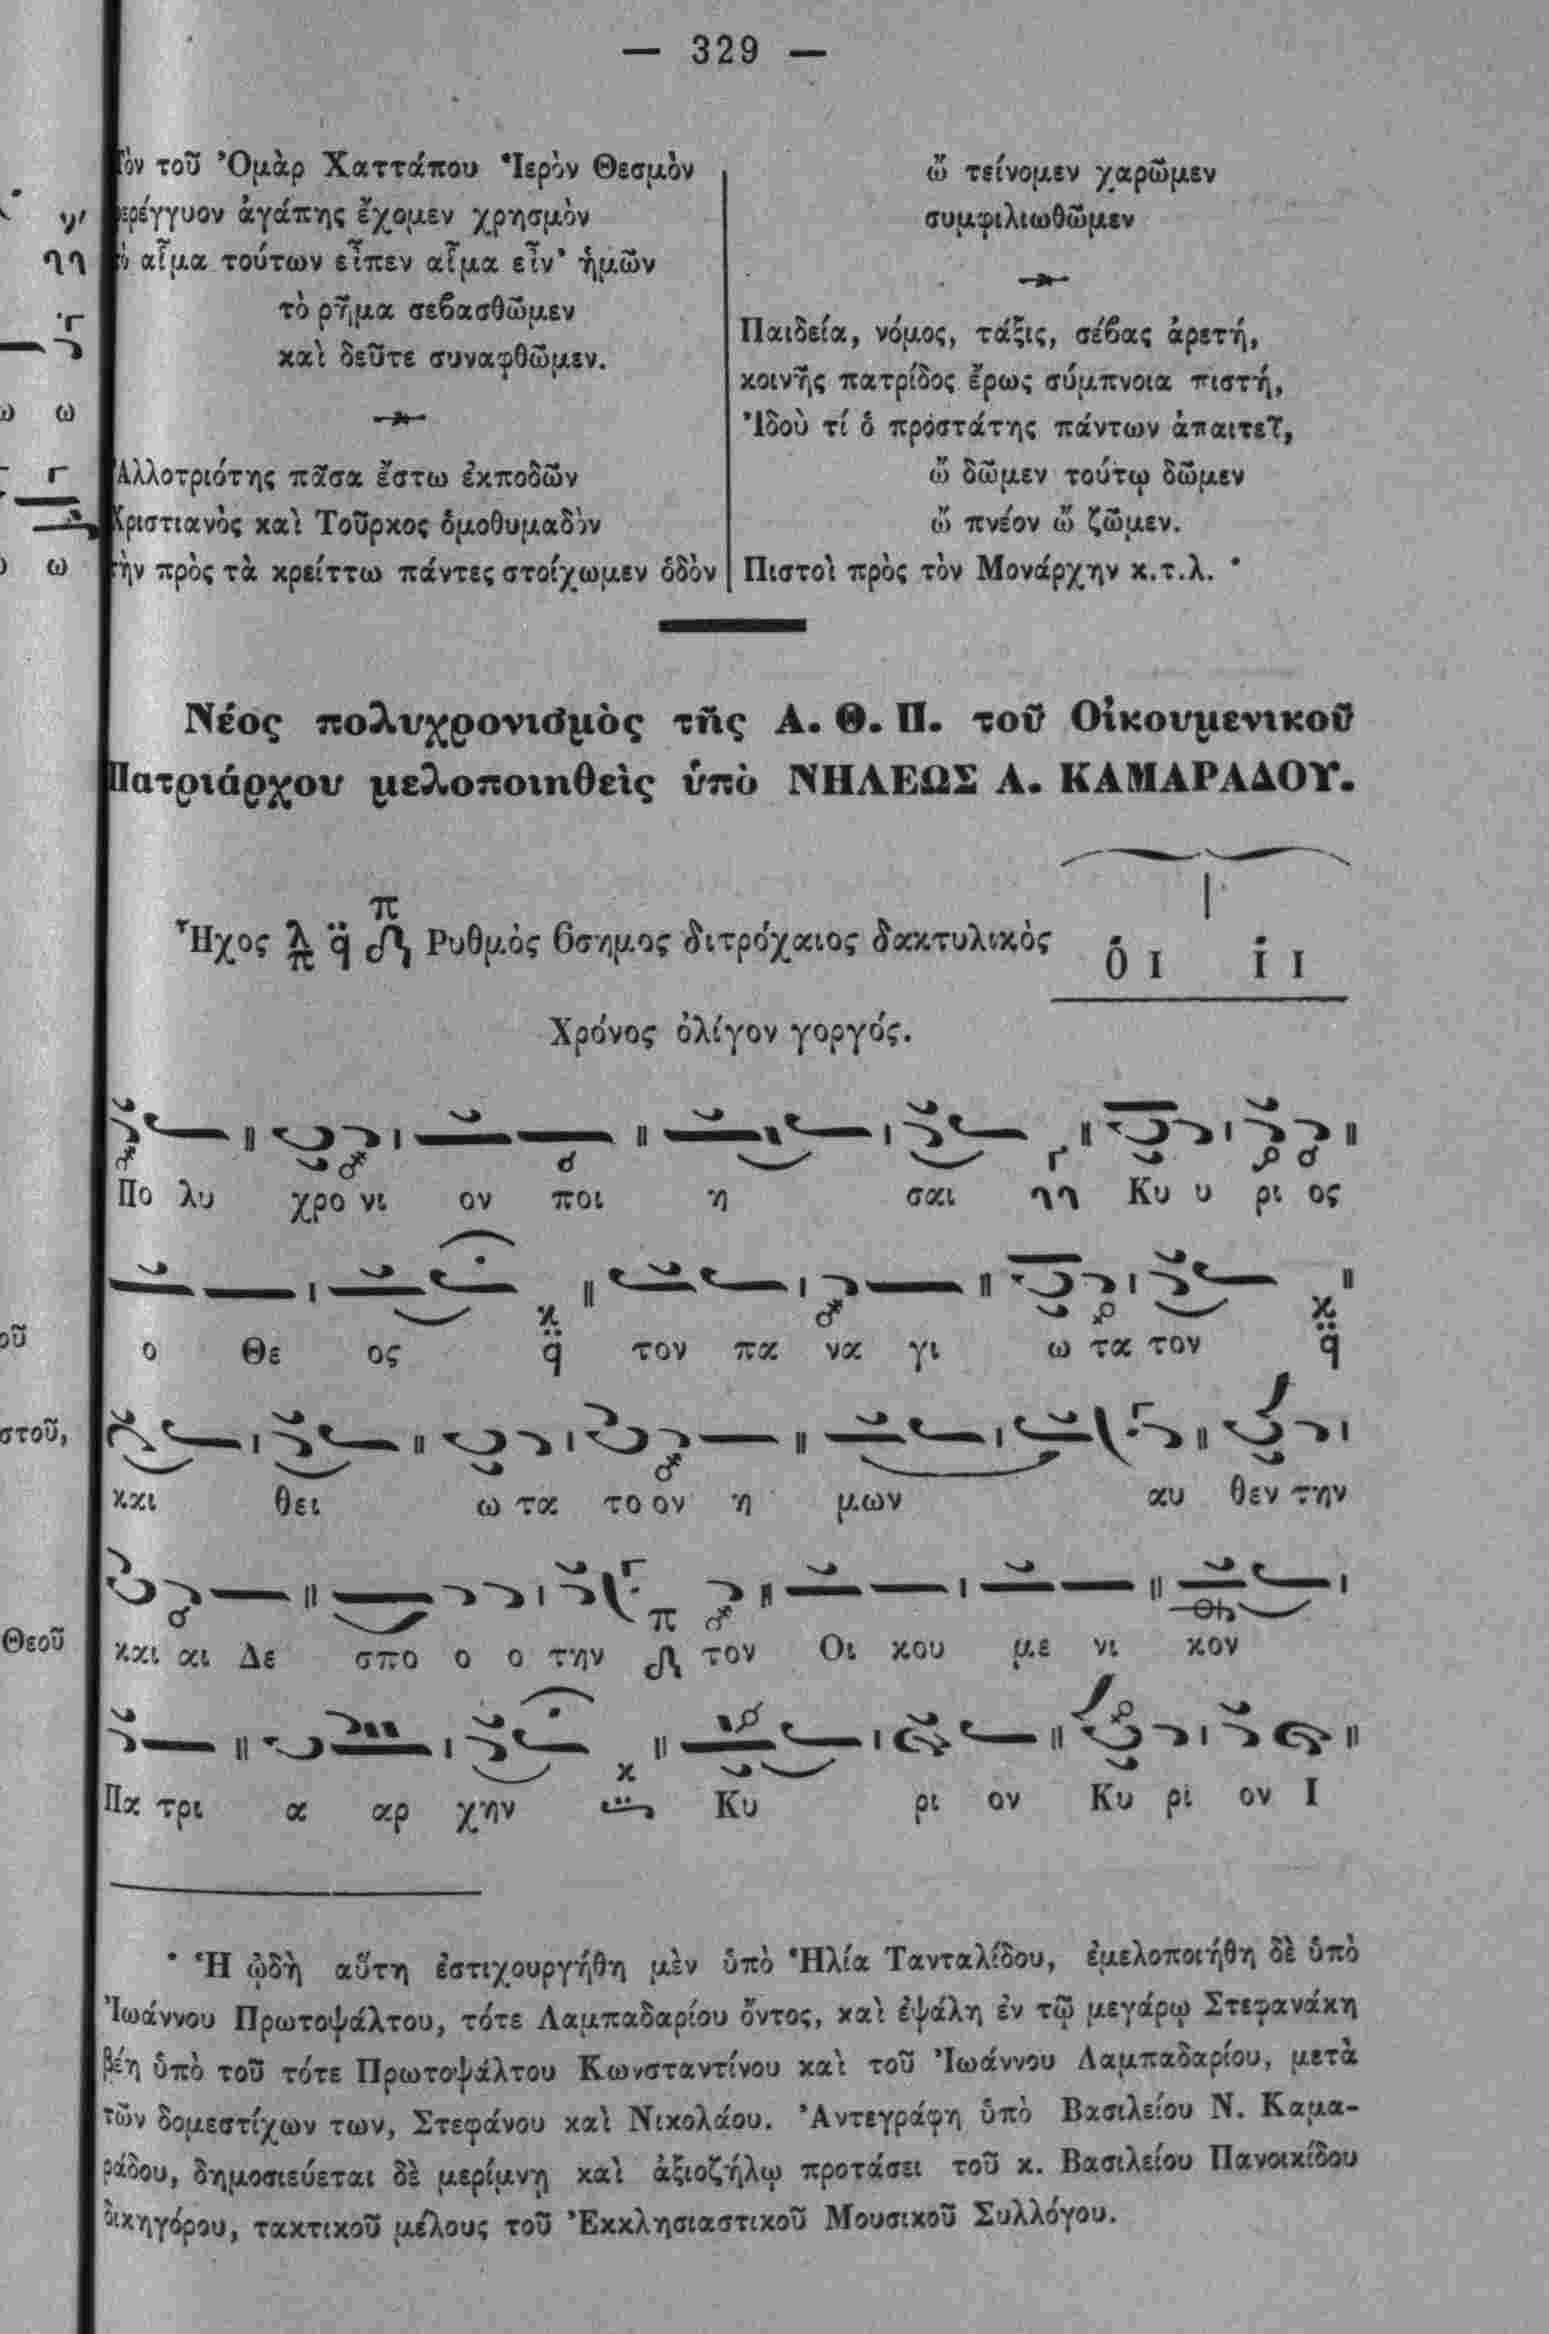 — 329 —
τοῦ Ὀμὰρ Χαττάπου Ἱερὸν Θεσμὸν
ἀγάπης ἔχομεν χρησμὸν
αἷμα τούτων εἶπεν αἷμα εἶν' ἡμῶν
τὸ ρῆμα σεβασθῶμεν
καὶ δεῦτε συναφθῶμεν.
Ἀλλοτριότης πᾶσα ἔστω ἐκποδῶν
Χριστιανὸς καὶ Τοῦρκος ὁμοθυμαδὸν
τὴν πρὸς τὰ κρείττω πάντες στοίχωμεν ὁδὸν
ὢ τείνομεν χαρῶμεν
συμφιλιωθῶμεν
Παιδεία, νόμος, τάξις, σέβας ἀρετή,
κοινῆς πατρίδος ἔρως σύμπνοια πιστή,
Ἰδοὺ τί ὁ προστάτης πάντων ἀπαιτεῖ,
ὢ δῶμεν τούτῳ δῶμεν
ὢ πνέον ὢ ζῶμεν.
Πιστοὶ πρὸς τὸν Μονάρχην κ.τ.λ. *
Νέος πολυχρονισμὸς τῆς Α. Θ. Π. τοῦ Οἰκουμενικοῦ
Πατριάρχου μελοποιηθεὶς ὑπὸ ΝΗΛΕΩΣ Α. ΚΑΜΑΡΑΔΟΥ.
Ἦχος λ π q π Ρυθμὸς 6σημος διτρόχαιος δακτυλικὸς
Χρόνος ὀλίγον γοργός.
Πο λυ χρο νι ον ποι η σαι Κυ υ ρι ος
ο Θε ος τον πα να γι ω τα τον
και θει ω τα το ον η μων αυ θεν την
και αι Δε σπο ο ο την τον Οι κου με νι κον
Πα τρι α αρ χην Κυ ρι ον Κυ ρι ον Ι
* Ἡ ᾠδὴ αὕτη ἐστιχουργήθη μὲν ὑπὸ Ἠλία Τανταλίδου, ἐμελοποιήθη δὲ ὑπὸ
Ἰωάννου Πρωτοψάλτου, τότε Λαμπαδαρίου ὄντος, καὶ ἐψάλη ἐν τῷ μεγάρῳ Στεφανάκη
βέη ὑπὸ τοῦ τότε Πρωτοψάλτου Κωνσταντίνου καὶ τοῦ Ἰωάννου Λαμπαδαρίου, μετὰ
τῶν δομεστίχων των, Στεφάνου καὶ Νικολάου. Ἀντεγράφη ὑπὸ Βασιλείου Ν. Καμα-
ράδου, δημοσιεύεται δὲ μερίμνῃ καὶ ἀξιοζήλῳ προτάσει τοῦ κ. Βασιλείου Πανοικίδου
δικηγόρου, τακτικοῦ μέλους τοῦ Ἐκκλησιαστικοῦ Μουσικοῦ Συλλόγου.